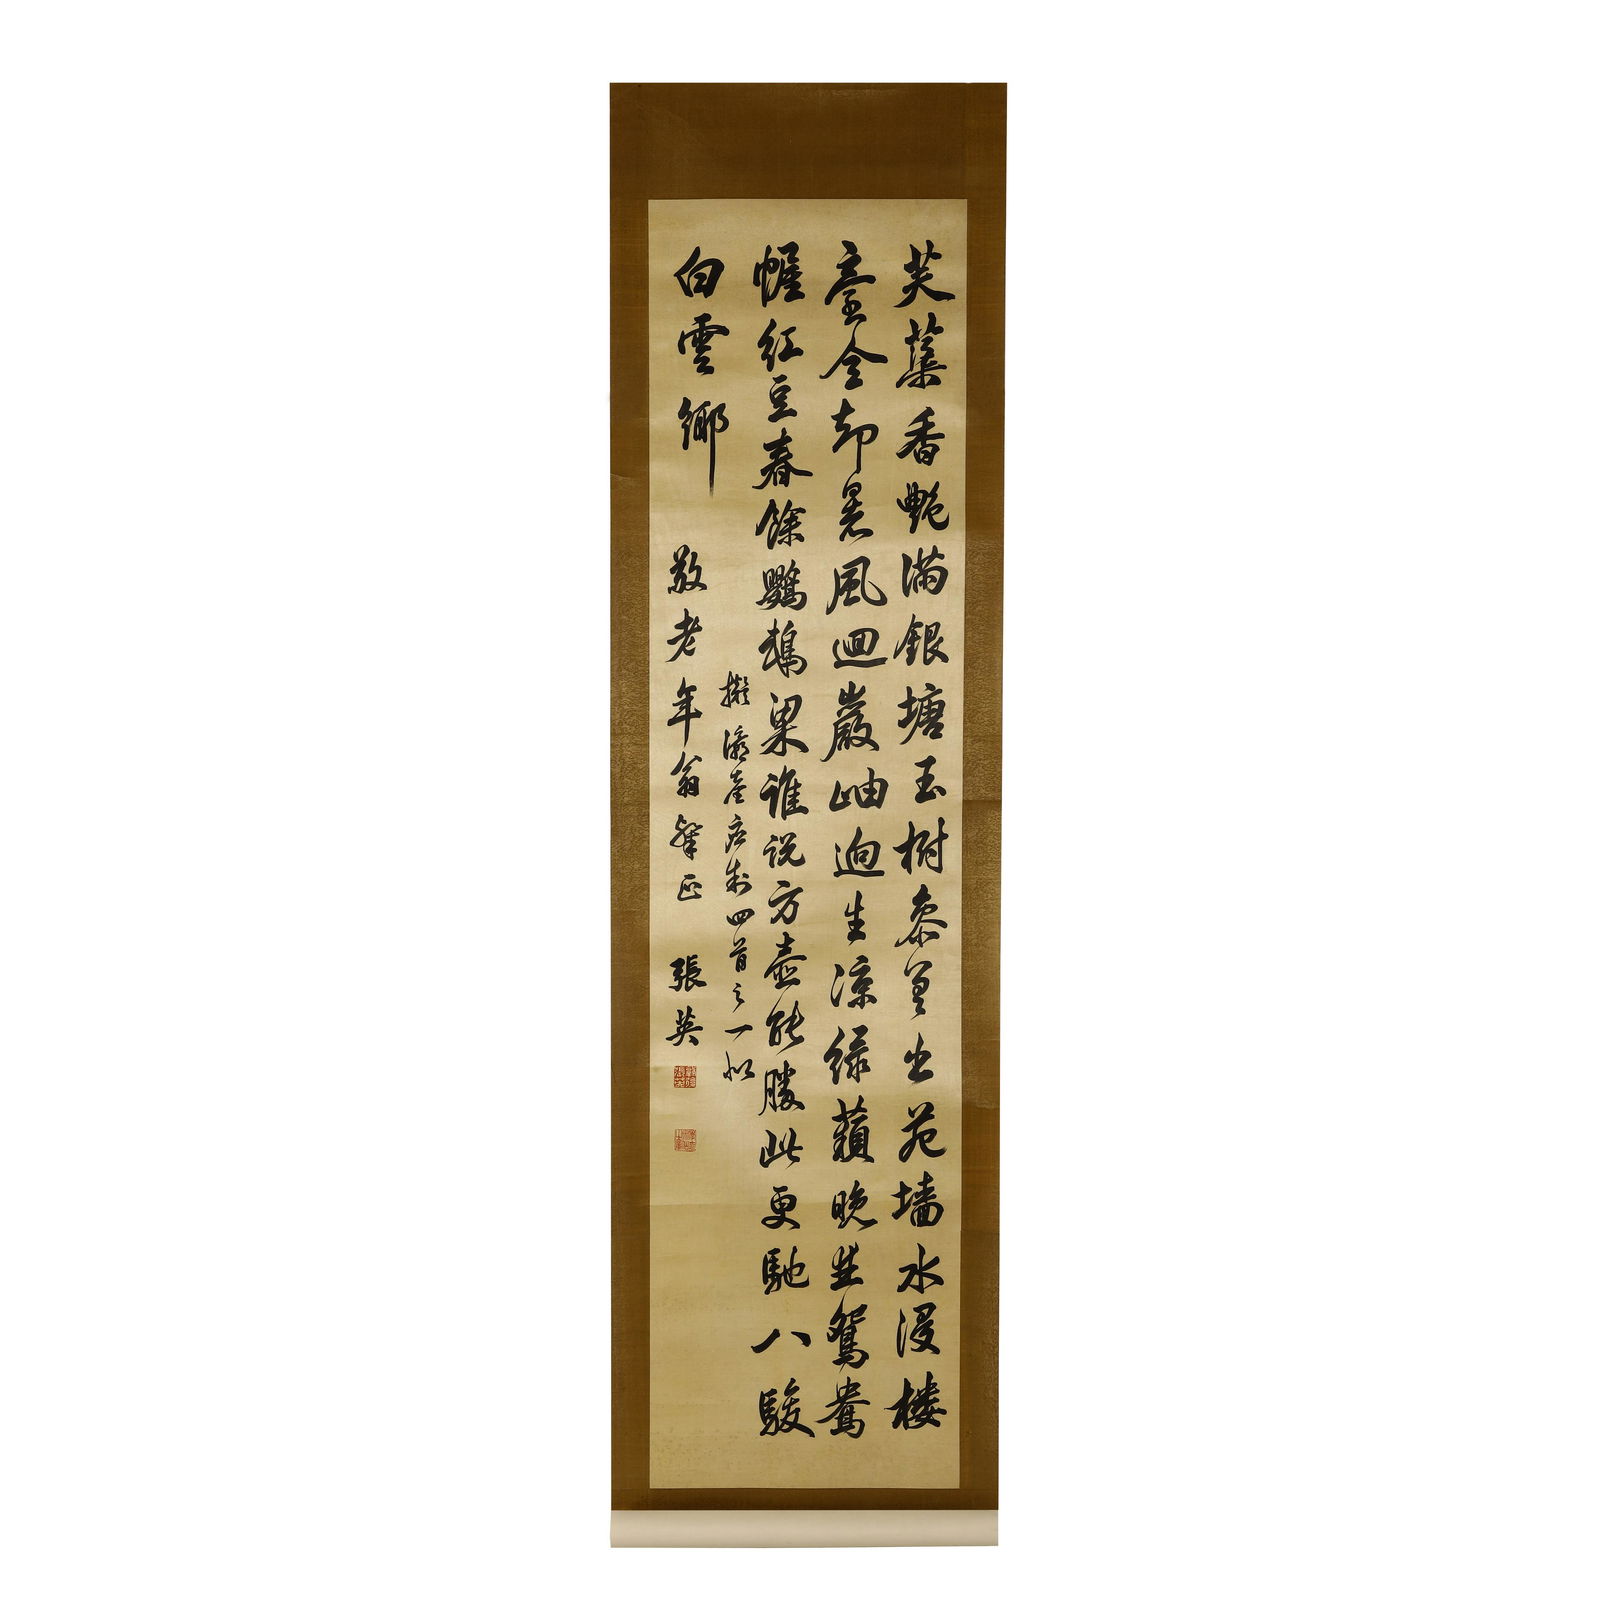 芙蕖香艶滿銀塘玉樹參差出苑墻水浸樓
臺全却暑風迴巖岫迥生涼綠蘋晚坐鴛鴦
幄紅豆春餘鸚鵡粱誰説方壺能勝此更馳八駿
白雲鄉
擬瀛臺應制四首之一似
敬老年翁粲正 張英